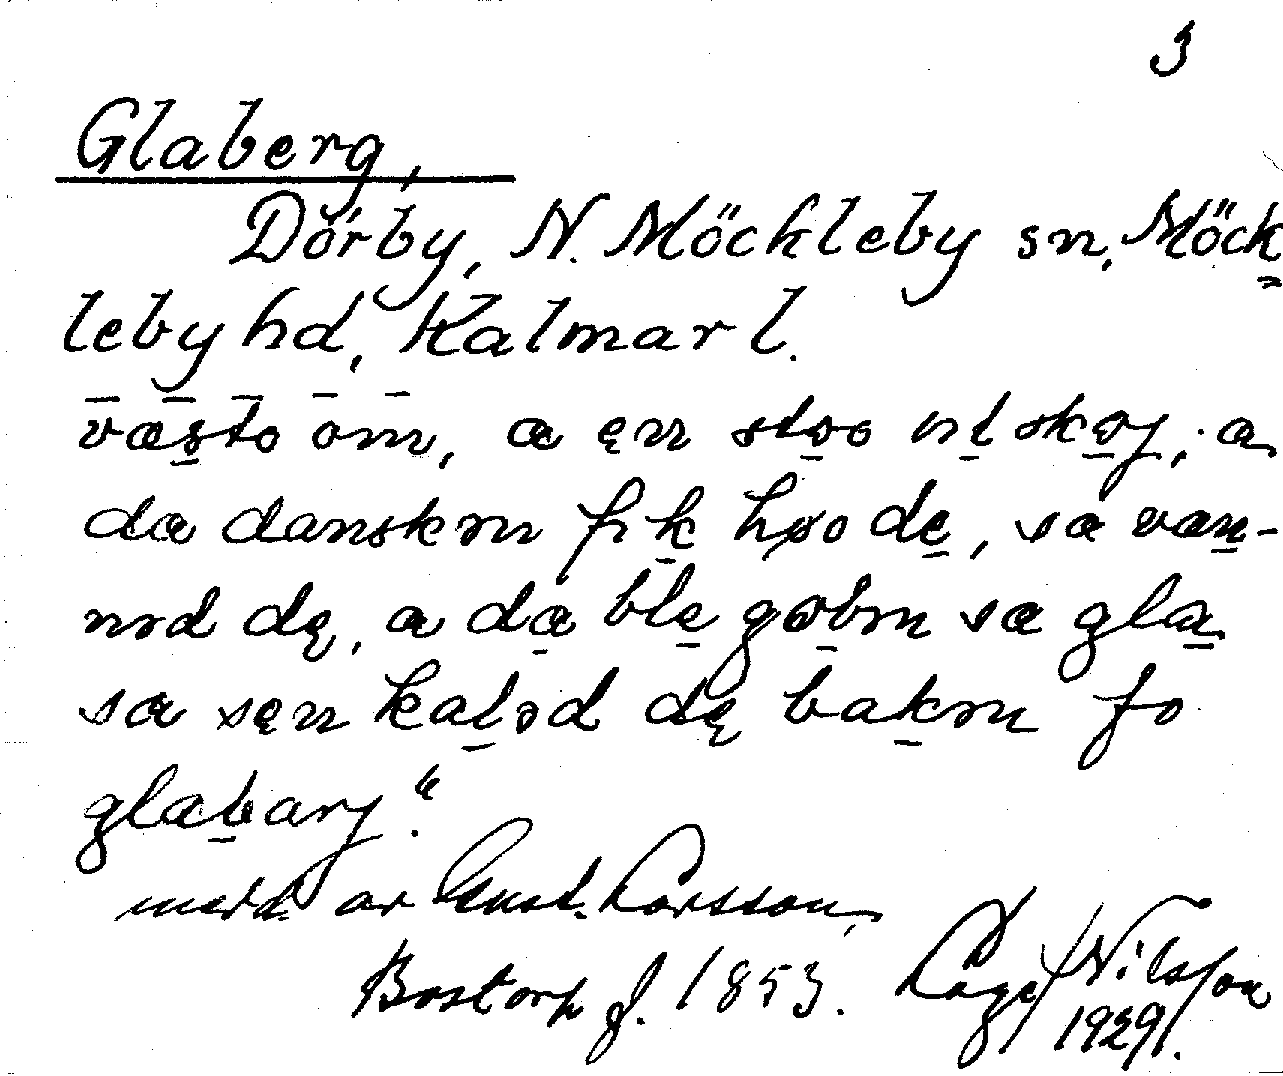 3
Glaberg,
Dörby, N. Möckleby sn, Möck-
leby hd, Kalmar l.
væsto om, æ ęn stoo utskoj, æ
dæ danskən fik høo de, sæ væn-
nəd dę, æ dæ ble gobən sæ glæ
sæ sęn kaləd dę bakən fo
glæbarj."
medd. av Gust. Larsson,
Bostorp f. 1853. Lage Nilsson
1929.